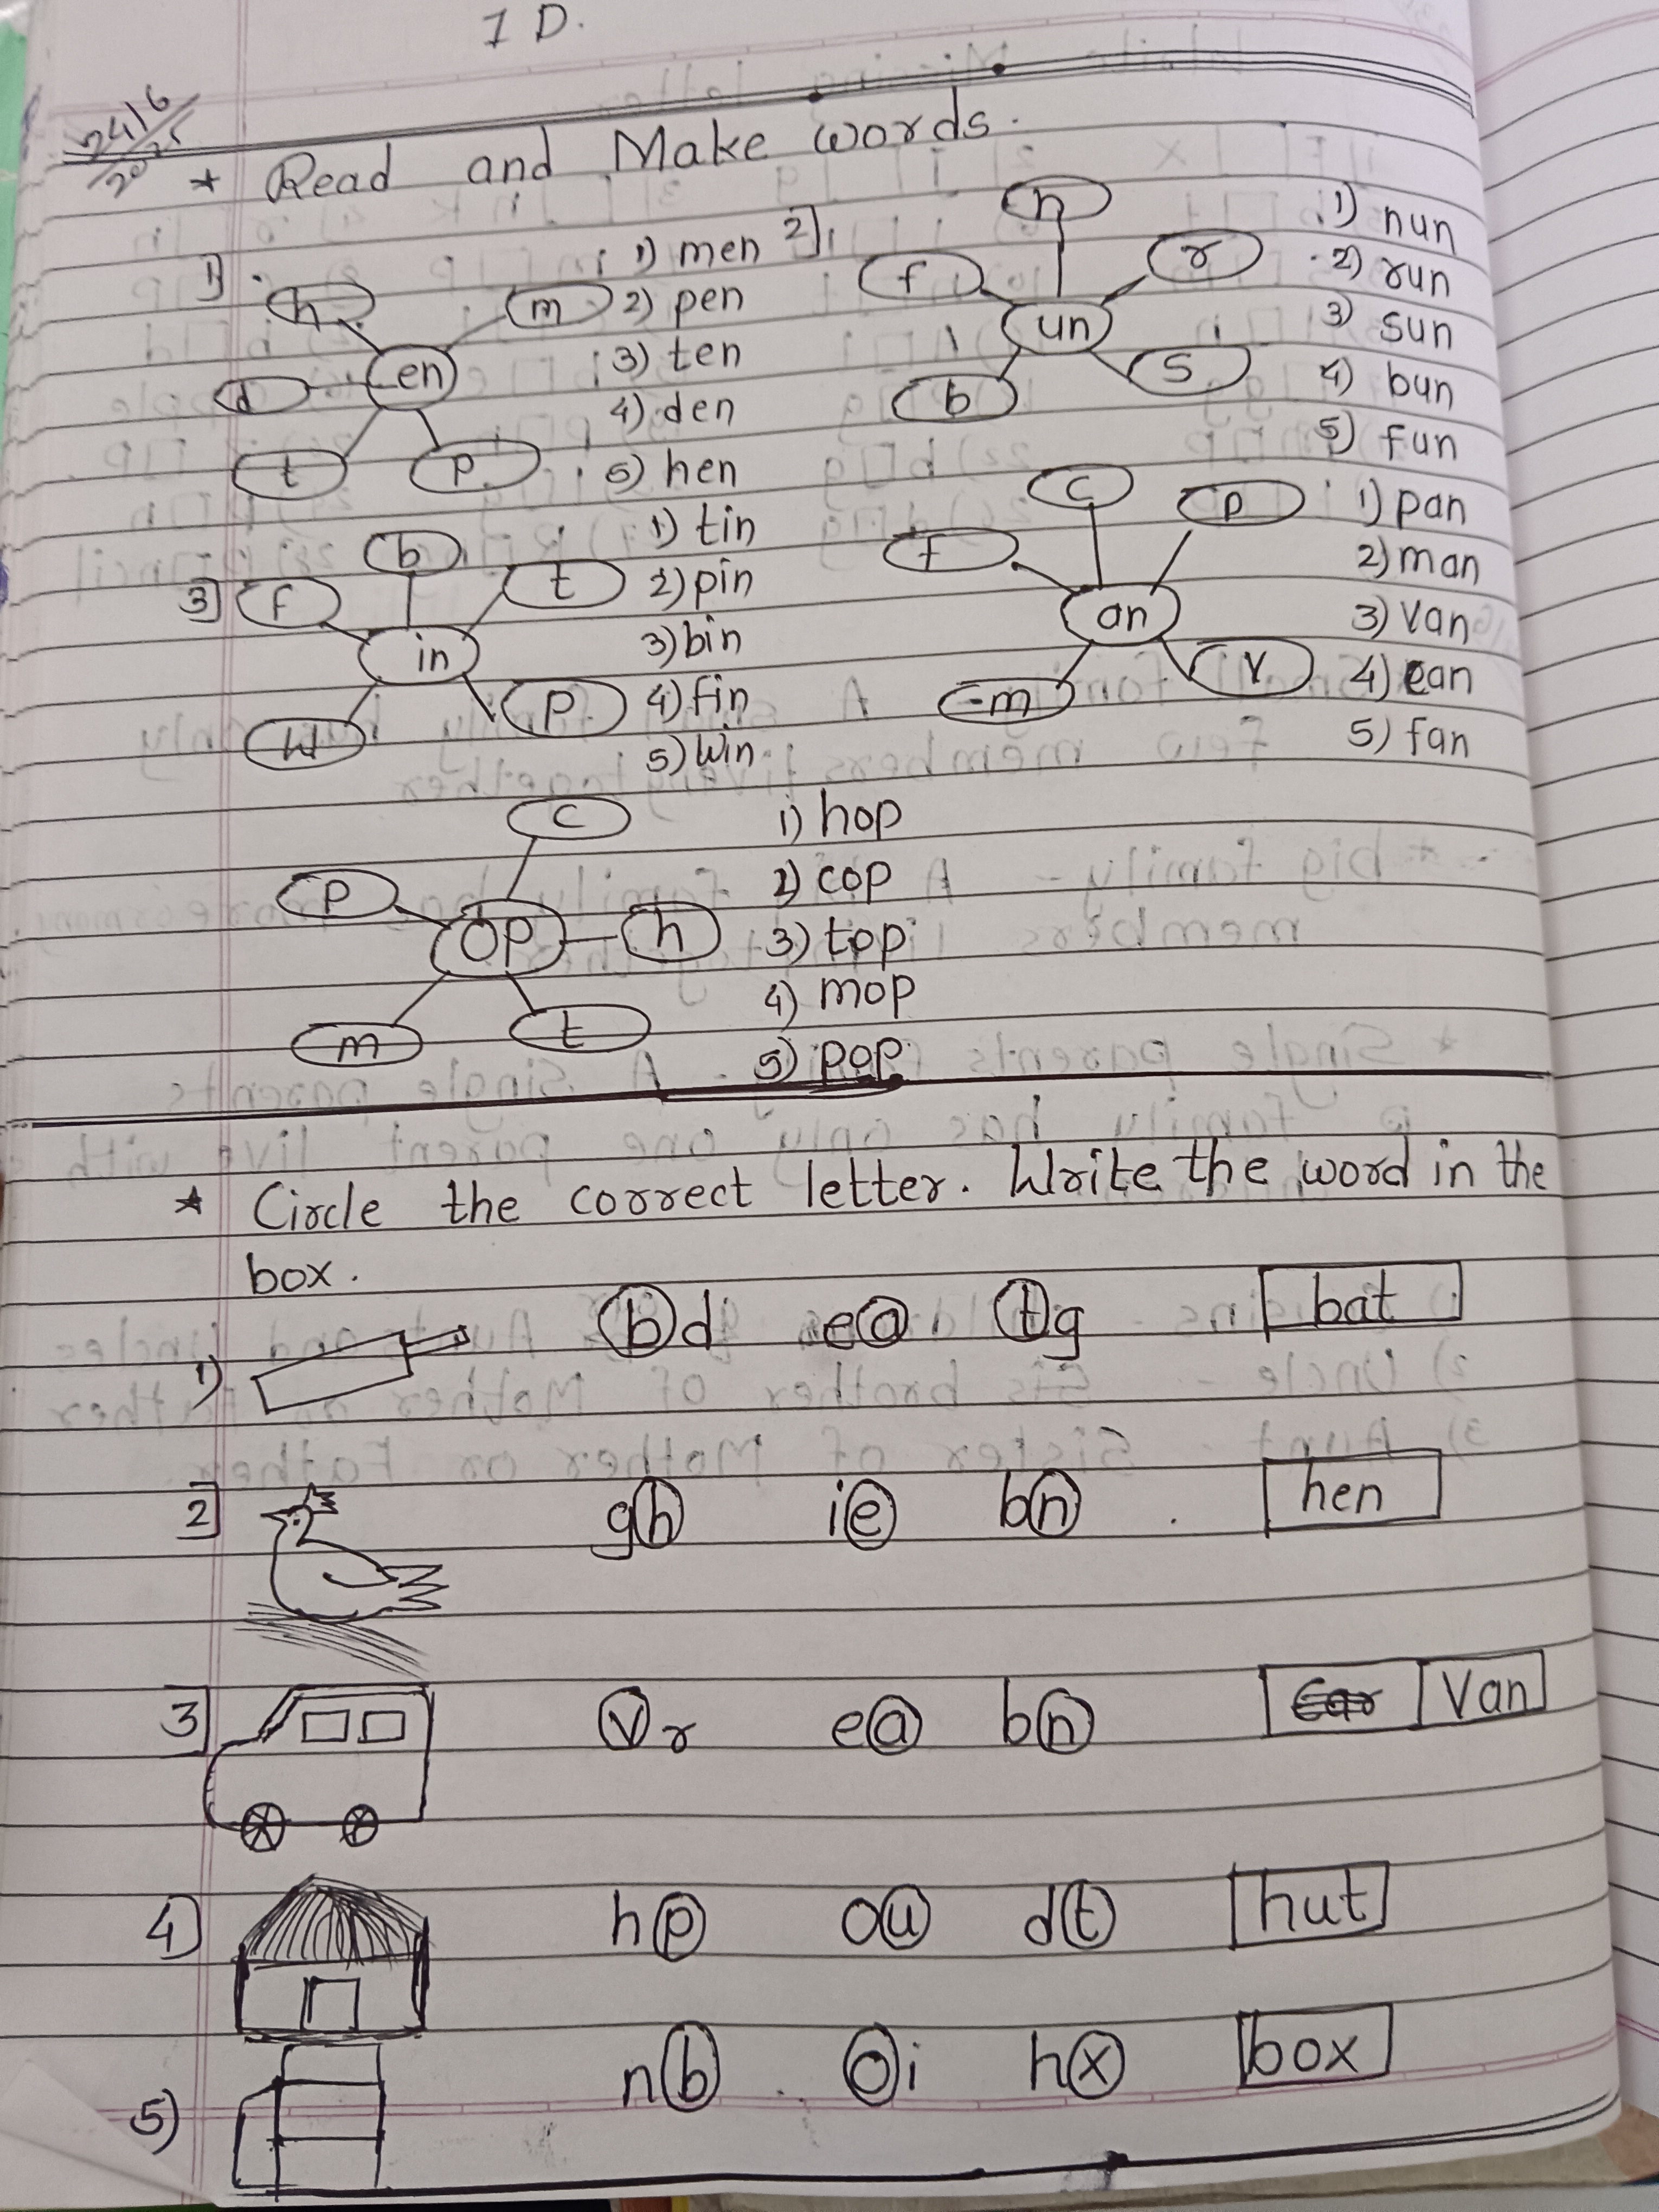 1 D.
24/6
2025
* Read and Make words.
1]
h
m
en
d
t
p
1) men
2) pen
3) ten
4) den
5) hen
2]
n
f
r
un
b
s
1) nun
2) run
3) sun
4) bun
5) fun
3]
b
f
t
in
w
p
1) tin
2) pin
3) bin
4) fin
5) win
c
p
f
an
m
v
1) pan
2) man
3) van
4) can
5) fan
c
p
op
h
m
t
1) hop
2) cop
3) top
4) mop
5) pop
* Circle the correct letter. Write the word in the
box.
1) b d e a t g bat
2] g h i e b n hen
3] v r e a b n Car Van
4) h p o u d t hut
5) n b o i h x box